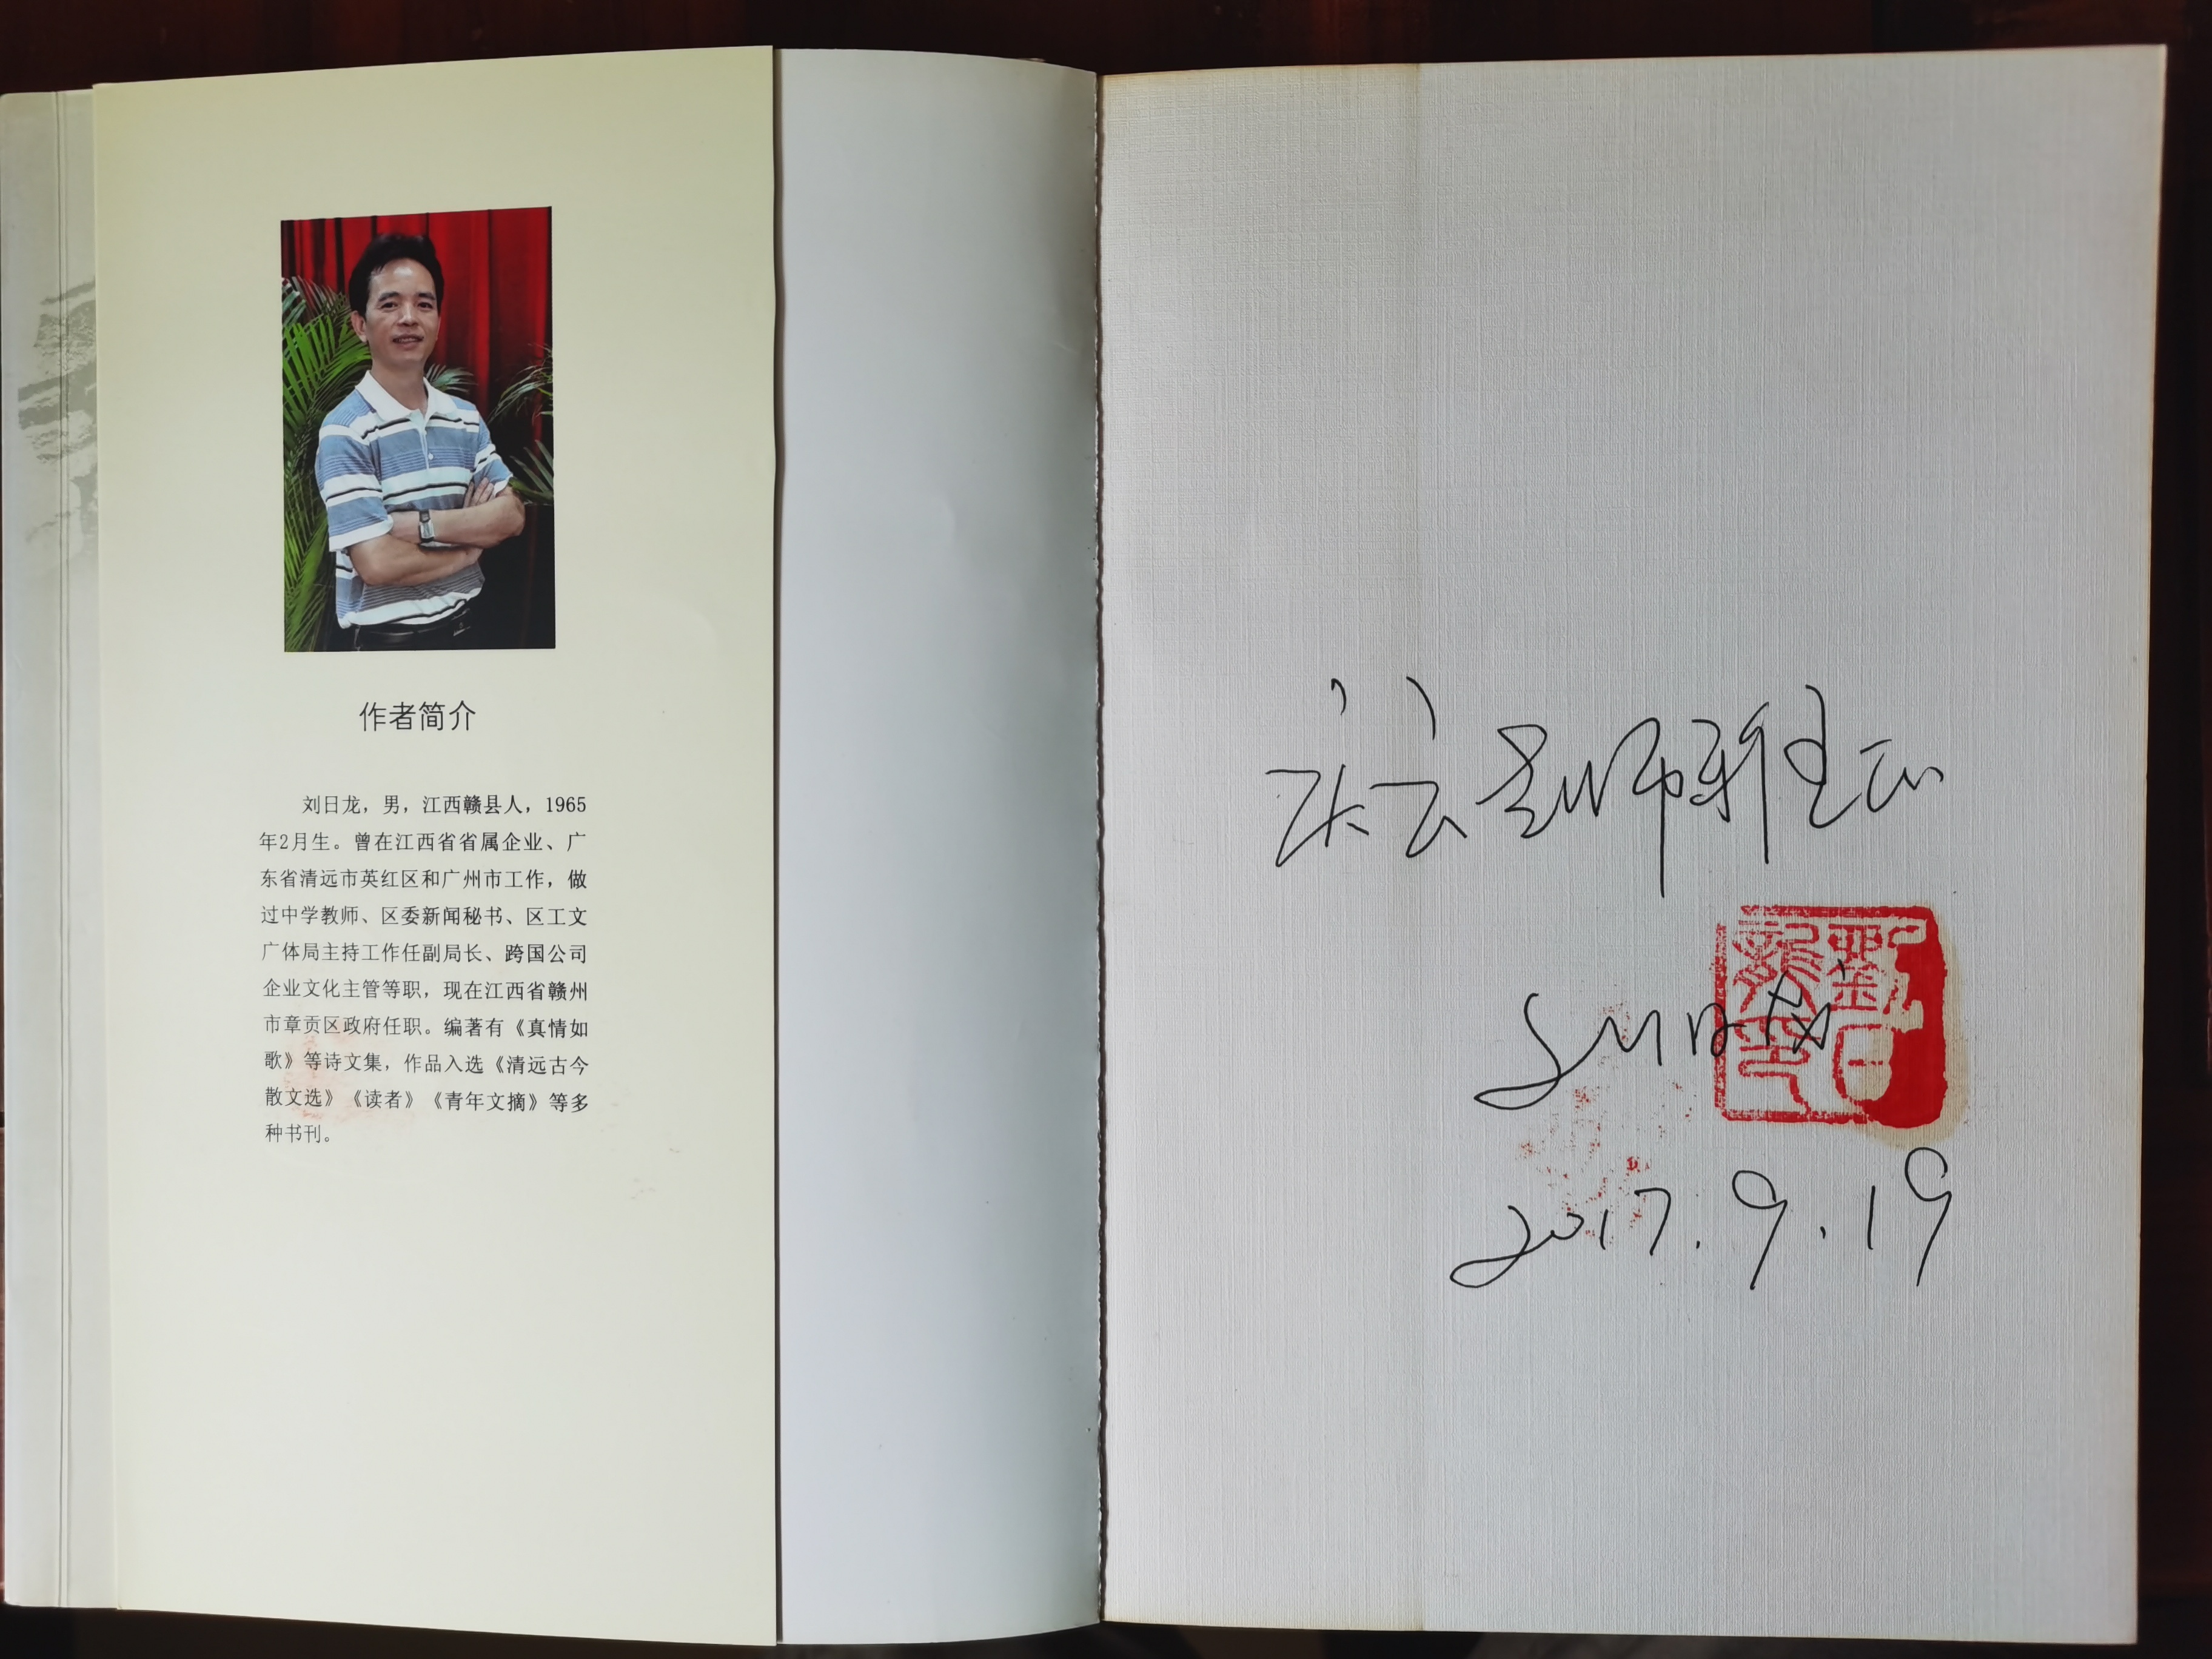 作者简介
刘日龙，男，江西赣县人，1965
年2月生。曾在江西省省属企业、广
东省清远市英红区和广州市工作，做
过中学教师、区委新闻秘书、区工文
广体局主持工作任副局长、跨国公司
企业文化主管等职，现在江西省赣州
市章贡区政府任职。编著有《真情如
歌》等诗文集，作品入选《清远古今
散文选》《读者》《青年文摘》等多
种书刊。
庆云 师雅正
刘日龙
劉日龍印
2017.9.19